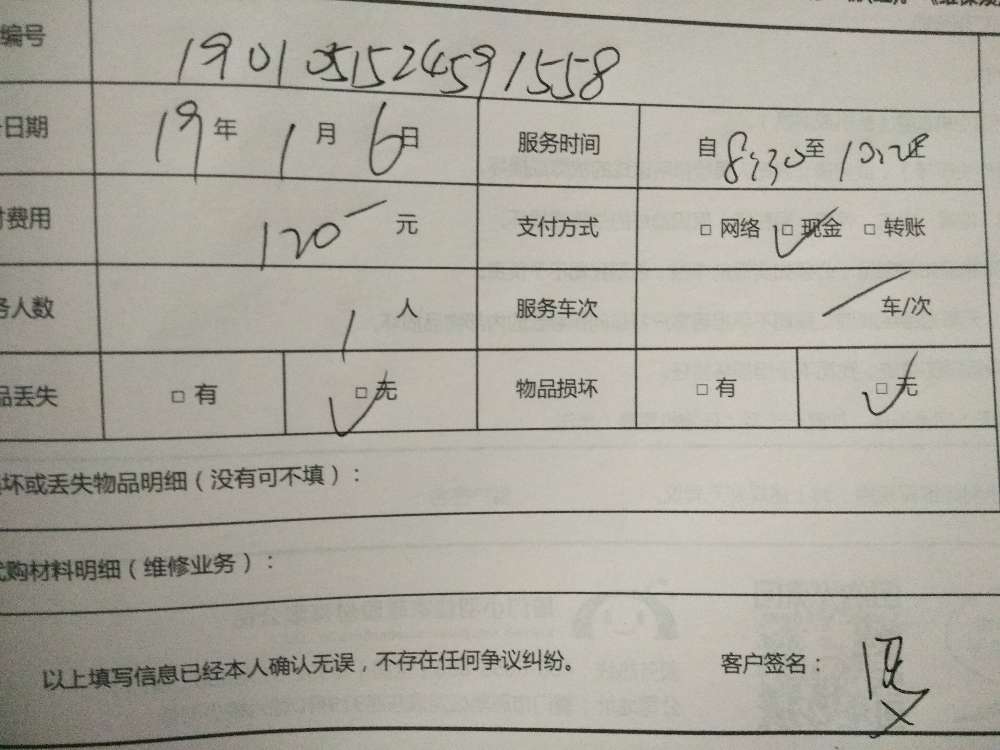 编号 1901051524591558
日期 19年1月6日 服务时间 自8:30至10:20止
费用 120 元 支付方式 □ 网络 □ 现金 □ 转账
人数 1 人 服务车次 车/次
品丢失 □ 有 □ 无 物品损坏 □ 有 □ 无
坏或丢失物品明细（没有可不填）：
购材料明细（维修业务）：
以上填写信息已经本人确认无误，不存在任何争议纠纷。 客户签名：